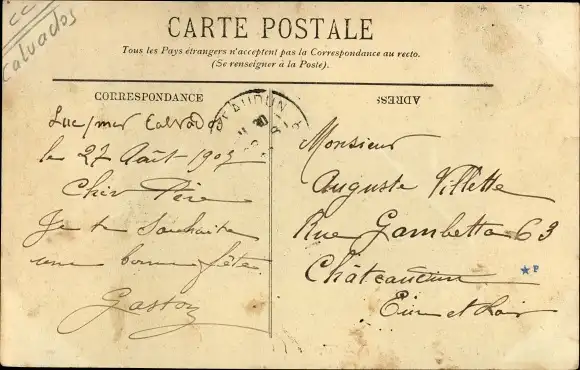 CC
Calvados
CARTE POSTALE
Tous les Pays étrangers n'acceptent pas la Correspondance au recto.
(Se renseigner à la Poste).
CORRESPONDANCE
Luc/mer Calvados
le 27 Août 1905
Cher Père
Je te souhaite
une bonne fête
Gaston
ADRESSE
Monsieur
Auguste Villette
Rue Gambetta 63
Châteaudun
Eure et Loir